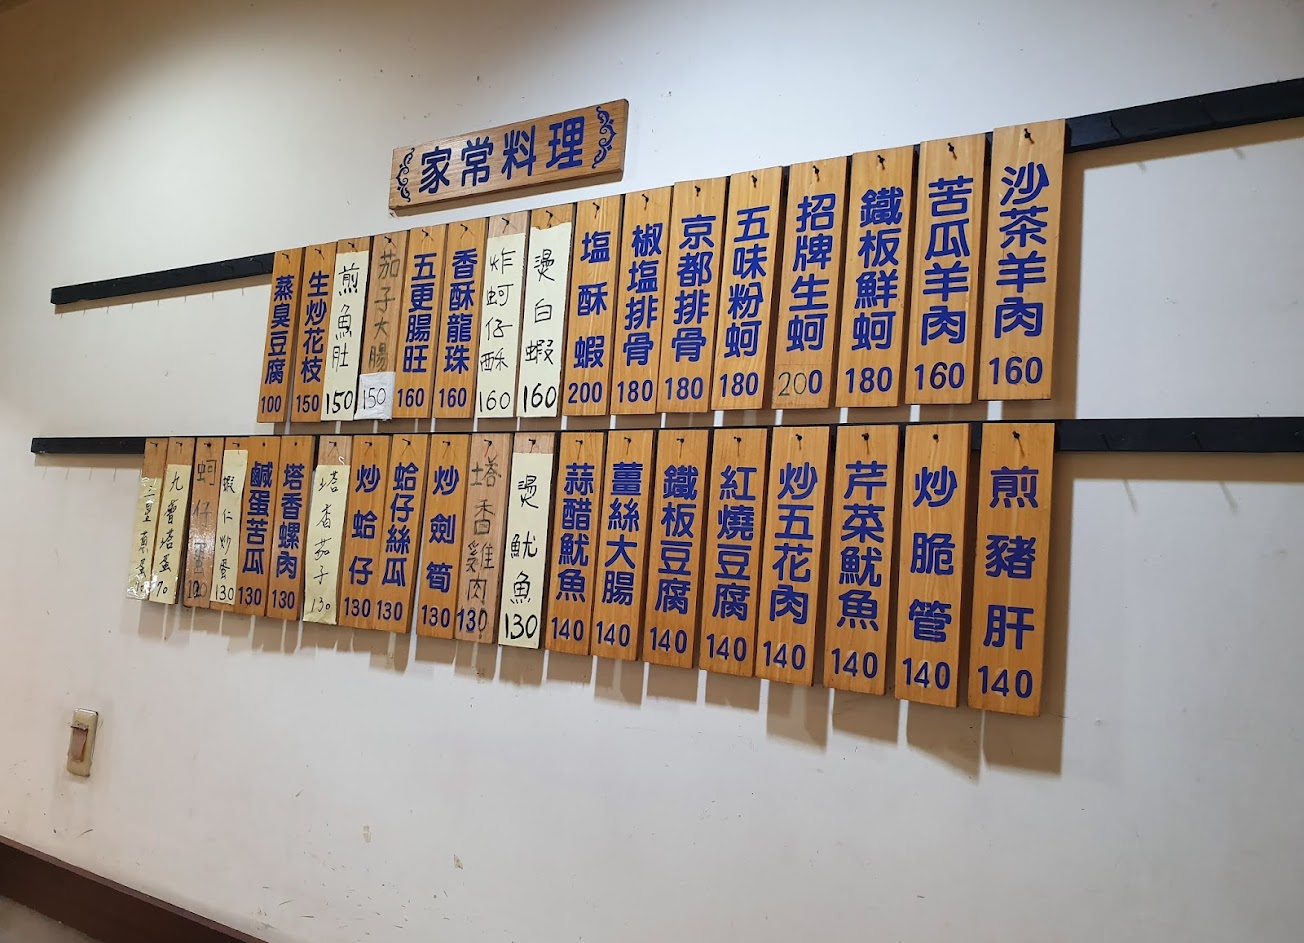 家常料理
沙茶羊肉 160
苦瓜羊肉 160
鐵板鮮蚵 180
招牌生蚵 200
五味粉蚵 180
京都排骨 180
椒塩排骨 180
塩酥蝦 200
燙白蝦 160
炸蚵仔酥 160
香酥龍珠 160
五更腸旺 160
茄子大腸 150
煎魚肚 150
生炒花枝 150
蒸臭豆腐 100
煎豬肝 140
炒脆管 140
芹菜魷魚 140
炒五花肉 140
紅燒豆腐 140
鐵板豆腐 140
薑絲大腸 140
蒜醋魷魚 140
燙魷魚 130
塔香雞肉 130
炒劍筍 130
蛤仔絲瓜 130
炒蛤仔 130
塔香茄子 130
塔香螺肉 130
鹹蛋苦瓜 130
蝦仁炒蛋 130
蚵仔蛋
九層塔蛋